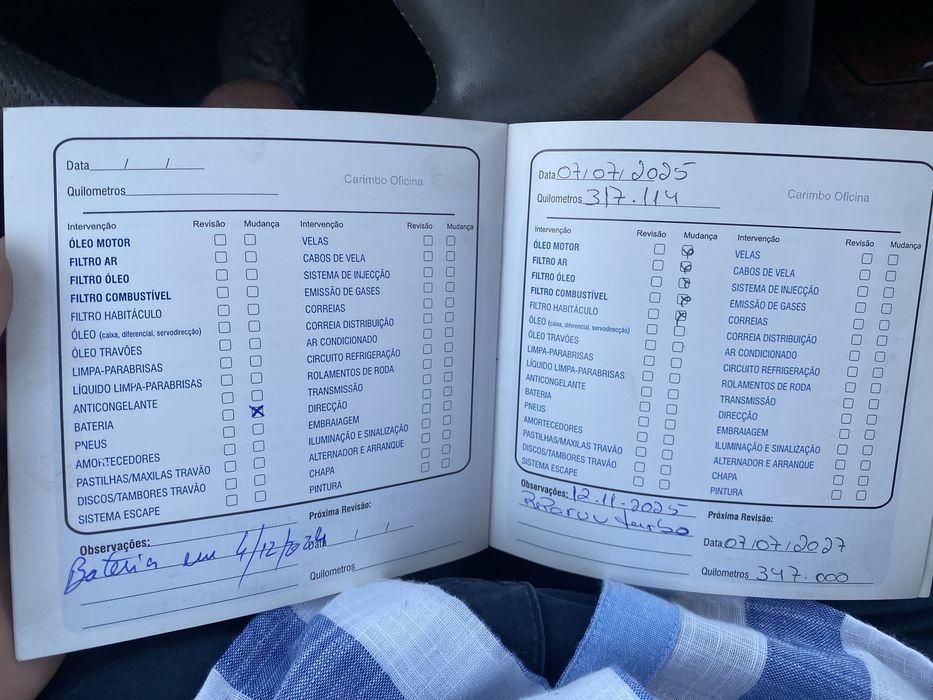 Data___/___/___
Carimbo Oficina
Quilometros
Intervenção Revisão Mudança Intervenção Revisão Mudança
ÓLEO MOTOR VELAS
FILTRO AR CABOS DE VELA
FILTRO ÓLEO SISTEMA DE INJECÇÃO
FILTRO COMBUSTÍVEL EMISSÃO DE GASES
FILTRO HABITÁCULO CORREIAS
ÓLEO (caixa, diferencial, servodirecção) CORREIA DISTRIBUIÇÃO
ÓLEO TRAVÕES AR CONDICIONADO
LIMPA-PARABRISAS CIRCUITO REFRIGERAÇÃO
LÍQUIDO LIMPA-PARABRISAS ROLAMENTOS DE RODA
ANTICONGELANTE TRANSMISSÃO
BATERIA DIRECÇÃO
PNEUS EMBRAIAGEM
AMORTECEDORES ILUMINAÇÃO E SINALIZAÇÃO
PASTILHAS/MAXILAS TRAVÃO ALTERNADOR E ARRANQUE
DISCOS/TAMBORES TRAVÃO CHAPA
SISTEMA ESCAPE PINTURA
Observações: Próxima Revisão:
Bateria em 4/12/2024
Data / /
Quilometros
Data 07/07/2025
Carimbo Oficina
Quilometros 317.114
Intervenção Revisão Mudança Intervenção Revisão Mudança
ÓLEO MOTOR VELAS
FILTRO AR CABOS DE VELA
FILTRO ÓLEO SISTEMA DE INJECÇÃO
FILTRO COMBUSTÍVEL EMISSÃO DE GASES
FILTRO HABITÁCULO CORREIAS
ÓLEO (caixa, diferencial, servodirecção) CORREIA DISTRIBUIÇÃO
ÓLEO TRAVÕES AR CONDICIONADO
LIMPA-PARABRISAS CIRCUITO REFRIGERAÇÃO
LÍQUIDO LIMPA-PARABRISAS ROLAMENTOS DE RODA
ANTICONGELANTE TRANSMISSÃO
BATERIA DIRECÇÃO
PNEUS EMBRAIAGEM
AMORTECEDORES ILUMINAÇÃO E SINALIZAÇÃO
PASTILHAS/MAXILAS TRAVÃO ALTERNADOR E ARRANQUE
DISCOS/TAMBORES TRAVÃO CHAPA
SISTEMA ESCAPE PINTURA
Observações: 12-11-2025
turbo
Próxima Revisão:
Data 07/07/2027
Quilometros 347.000